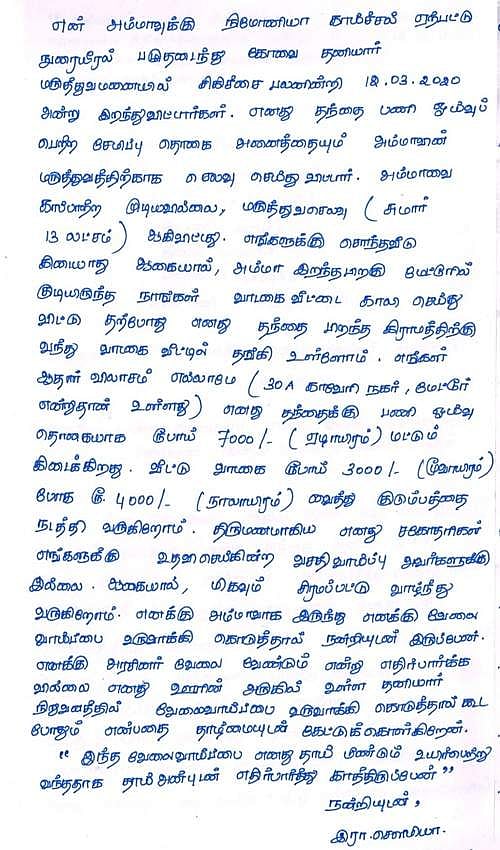 என் அம்மாவுக்கு நிமோனியா காய்ச்சல் ஏற்பட்டு
நுரையீரல் பழுதடைந்து கோவை தனியார்
மருத்துவமனையில் சிகிச்சை பலனின்றி 12.03.2020
அன்று இறந்துவிட்டார்கள். எனது தந்தை பணி ஓய்வுப்
பெற்ற சேமிப்பு தொகை அனைத்தையும் அம்மாவின்
மருத்துவத்திற்காக செலவு செய்து விட்டார். அம்மாவை
காப்பாற்ற முடியவில்லை, மருத்துவசெலவு (சுமார்
13 லட்சம்) ஆகிவிட்டது. எங்களுக்கு சொந்தவீடு
கிடையாது ஆகையால், அம்மா இறந்தபிறகு மேட்டூரில்
குடியிருந்த நாங்கள் வாடகை வீட்டை காலி செய்து
விட்டு தற்போது எனது தந்தை பிறந்த கிராமத்திற்கு
வந்து வாடகை வீட்டில் தங்கி உள்ளோம். எங்கள்
ஆதார் விலாசம் எல்லாமே (30A காவேரி நகர், மேட்டூர்
என்றுதான் உள்ளது) எனது தந்தைக்கு பணி ஓய்வு
தொகையாக ரூபாய் 7000/- (ஏழாயிரம்) மட்டும்
கிடைக்கிறது. வீட்டு வாடகை ரூபாய் 3000/- (மூவாயிரம்)
போக ரூ. 4000/- (நாலாயிரம்) வைத்து குடும்பத்தை
நடத்தி வருகிறோம். திருமணமாகிய எனது சகோதரிகள்
எங்களுக்கு உதவிசெய்கின்ற வசதி வாய்ப்பு அவர்களுக்கு
இல்லை. ஆகையால், மிகவும் சிரமப்பட்டு வாழ்ந்து
வருகிறோம். எனக்கு அம்மாவாக இருந்து எனக்கு வேலை
வாய்ப்பை உருவாக்கி கொடுத்தால் நன்றியுடன் இருப்பேன்.
எனக்கு அரசினர் வேலை வேண்டும் என்று எதிர்பார்க்க
வில்லை எனது ஊரின் அருகில் உள்ள தனியார்
நிறுவனத்தில் வேலைவாய்ப்பை உருவாக்கி கொடுத்தால் கூட
போதும் என்பதை தாழ்மையுடன் கேட்டுக்கொள்கிறேன்.
" இந்த வேலைவாய்ப்பை எனது தாய் மீண்டும் உயிர்பெற்று
வந்ததாக தாய் அன்புடன் எதிர்பார்த்து காத்திருப்பேன் "
நன்றியுடன்,
இரா.சௌமியா.